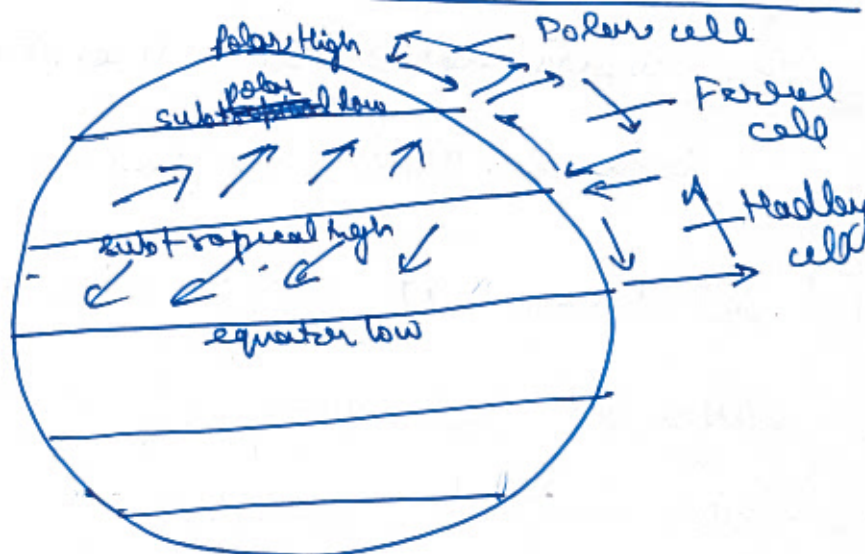 Polar High
Polar cell
polar
sub low
Ferrel
cell
subtropical high
Hadley
cell
equator low